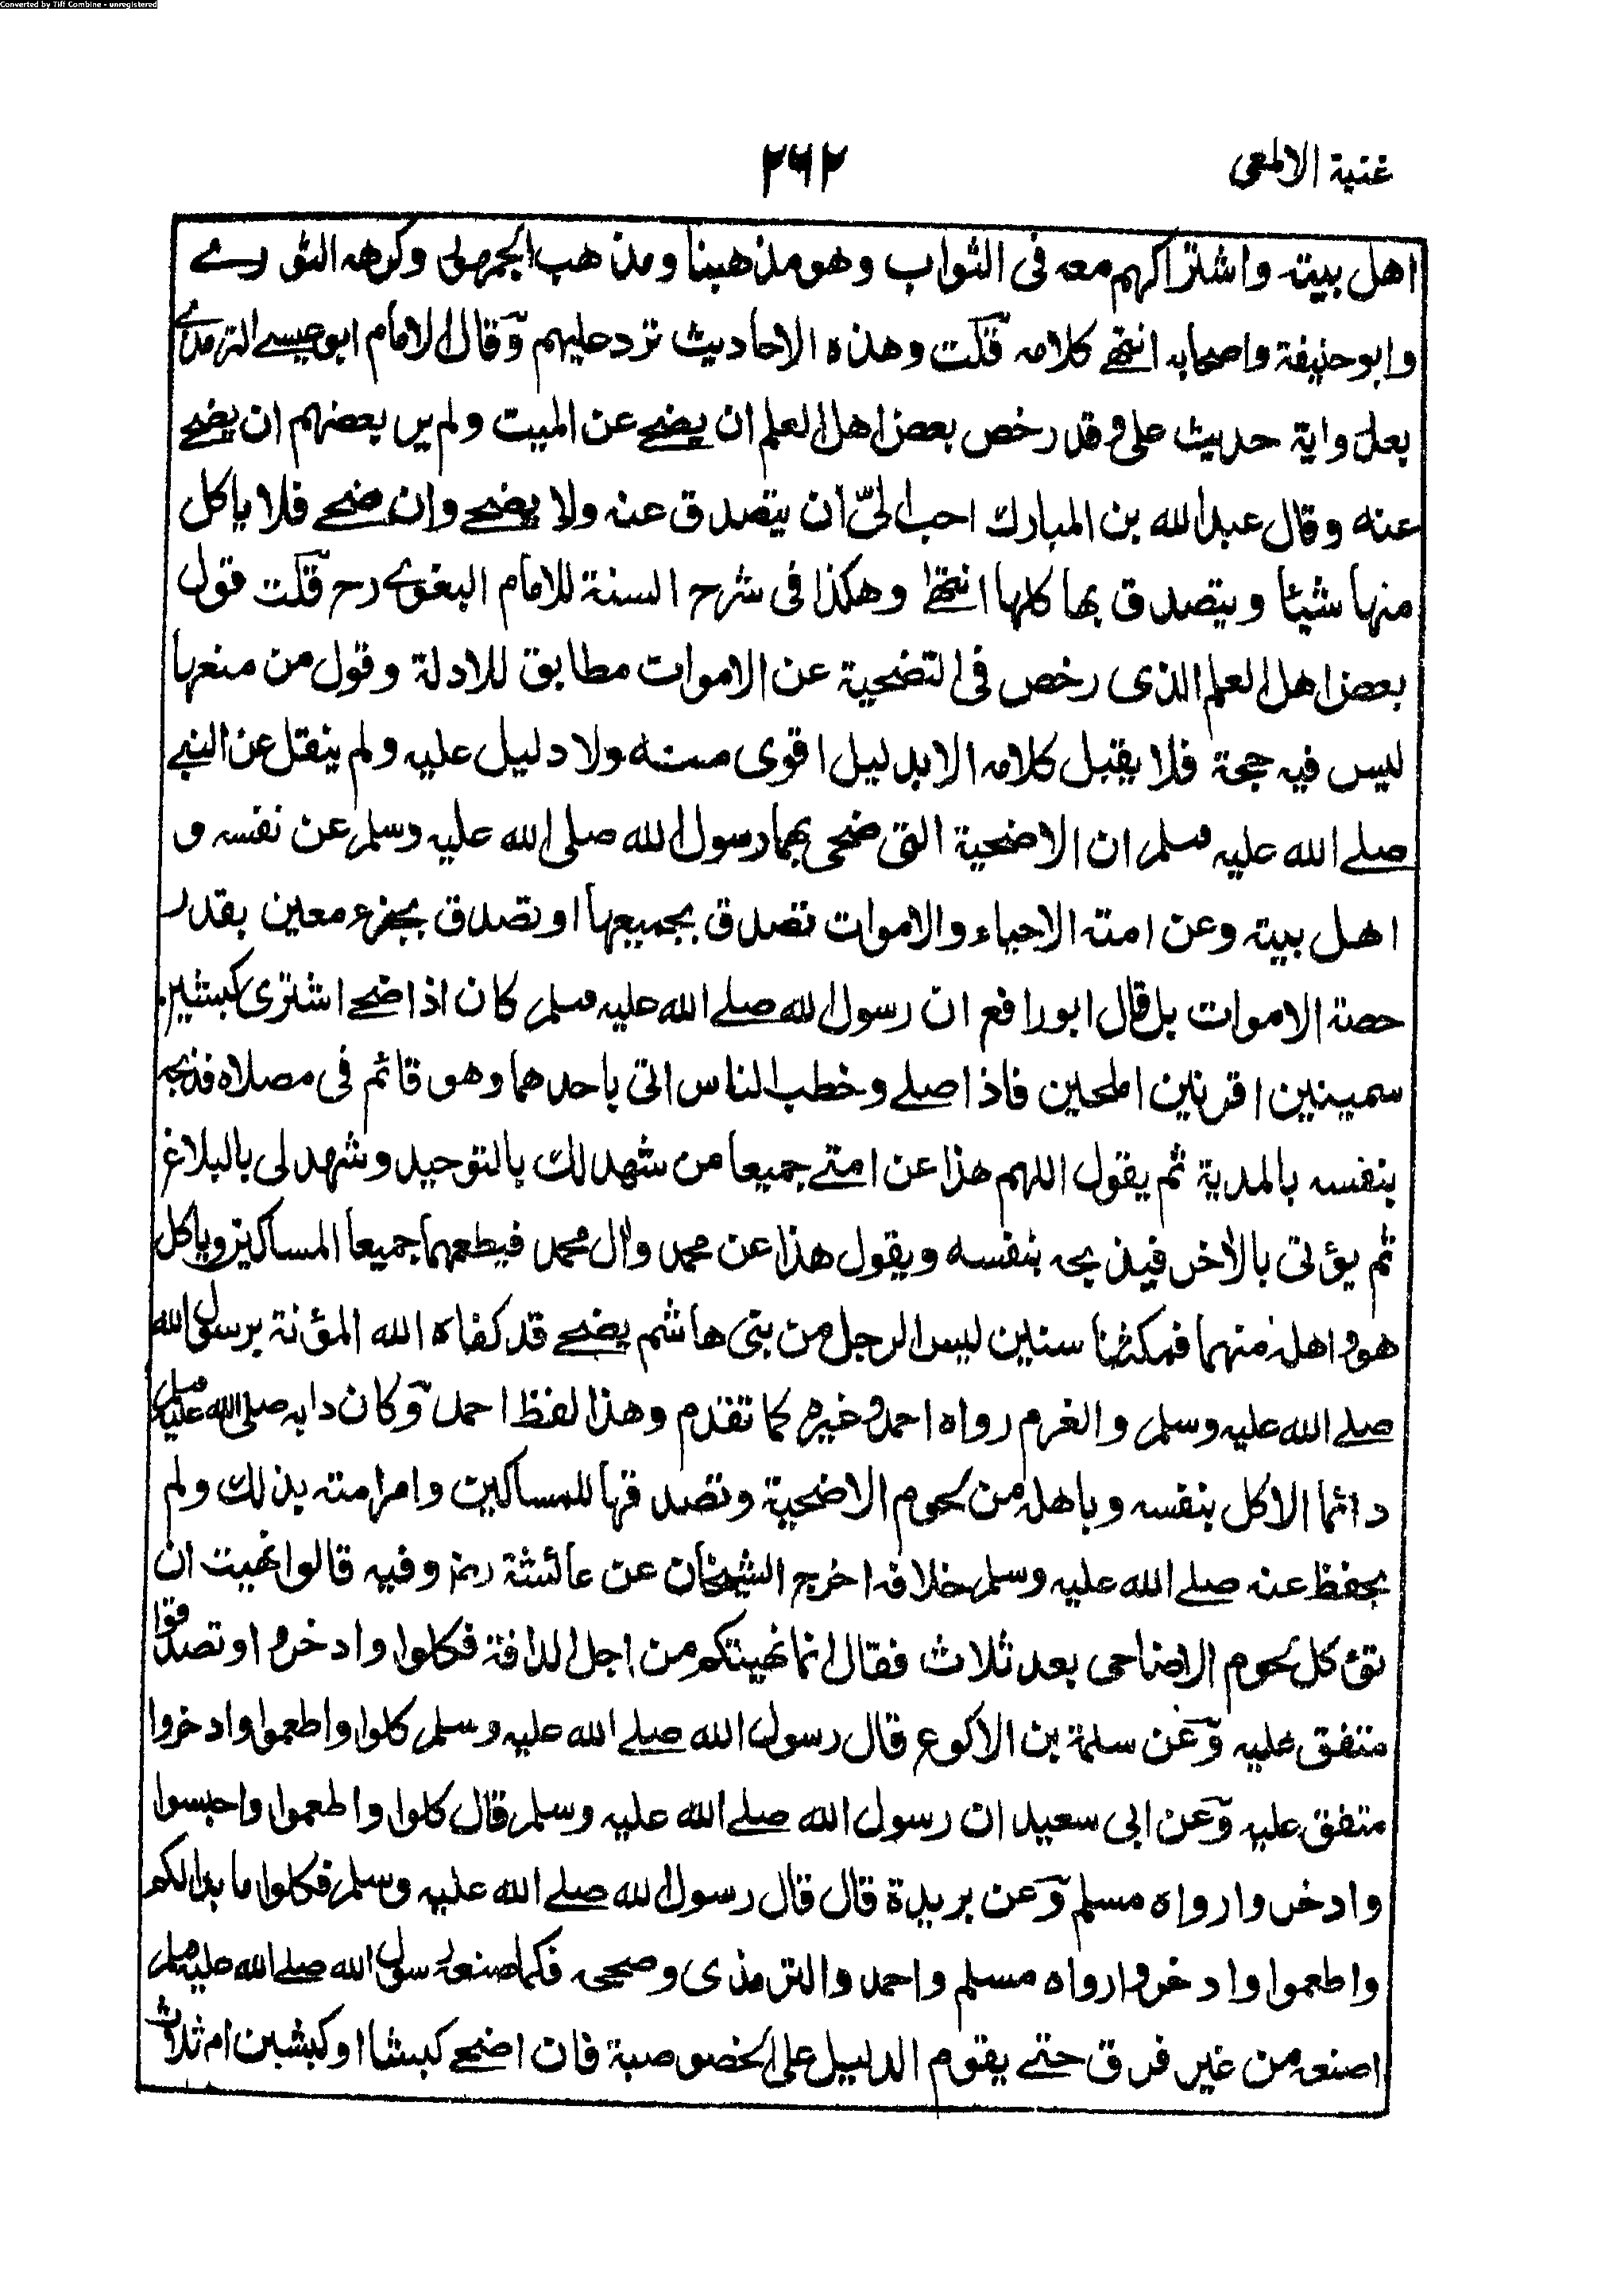 Converted by Tiff Combine - unregistered
غنية الالمعى
٢٦٢
اهل بيته واشتراكهم معه فى الثواب وهو مذهبنا ومذهب الجمهور وكرهه الثورے
وابو حنيفة واصحابه انتهے كلامه قلت وهذه الاحاديث ترد عليهم وقال الامام ابو عيسے الترمذے
بعد رواية حديث على وقد رخص بعض اهل العلم ان يضحے عن الميت ولم ير بعضهم ان يضحے
عنه وقال عبد الله بن المبارك احب الىّ ان يتصدق عنه ولا يضحے وان ضحے فلا ياكل
منها شيئا ويتصدق بها كلها انتهے وهكذا فى شرح السنة للامام البغوے رح قلت قول
بعض اهل العلم الذى رخص فى التضحية عن الاموات مطابق للادلة وقول من منعها
ليس فيه حجة فلا يقبل كلامه الا بدليل اقوى منه ولا دليل عليه ولم ينقل عن النبے
صلے الله عليه وسلم ان الاضحية التى ضحى بها رسول الله صلى الله عليه وسلم عن نفسه و
اهل بيته وعن امته الاحياء والاموات تصدق بجميعها او تصدق بجزء معين بقدر
حصة الاموات بل قال ابو رافع ان رسول الله صلے الله عليه وسلم كان اذا ضحے اشترى كبشين
سمينين اقرنين املحين فاذا صلے وخطب الناس اتى باحدهما وهو قائم فى مصلاه فذبحه
بنفسه بالمدية ثم يقول اللهم هذا عن امتے جميعا من شهد لك بالتوحيد وشهد لى بالبلاغ
ثم يؤتى بالاخر فيذبحه بنفسه ويقول هذا عن محمد وال محمد فيطعمهما جميعا المساكين وياكل
هو واهله منهما فمكثنا سنين ليس الرجل من بنى هاشم يضحے قد كفاه الله المؤنة برسول الله
صلے الله عليه وسلم والغرم رواه احمد وغيره كما تقدم وهذا لفظ احمد وكان دابه صلى الله عليه وسلم
دائما الاكل بنفسه وباهله من لحوم الاضحية وتصدقها للمساكين وامر امته بذلك ولم
يحفظ عنه صلے الله عليه وسلم خلافه اخرج الشيخان عن عائشة رضـ وفيه قالوا نهيت ان
تؤكل لحوم الاضاحى بعد ثلاث فقال انما نهيتكم من اجل الدافة فكلوا وادخروا وتصدقوا
متفق عليه وعن سلمة بن الاكوع قال رسول الله صلے الله عليه وسلم كلوا واطعموا وادخروا
متفق عليه وعن ابى سعيد ان رسول الله صلے الله عليه وسلم قال كلوا واطعموا واحبسوا
وادخروا رواه مسلم وعن بريدة قال قال رسول الله صلے الله عليه وسلم فكلوا ما بدا لكم
واطعموا وادخروا رواه مسلم واحمد والترمذى وصححه فكما صنعه رسول الله صلے الله عليه وسلم
اصنعه من غير فرق حتے يقوم الدليل على الخصوصية فان اضحے كبشا او كبشين ام ثلاث